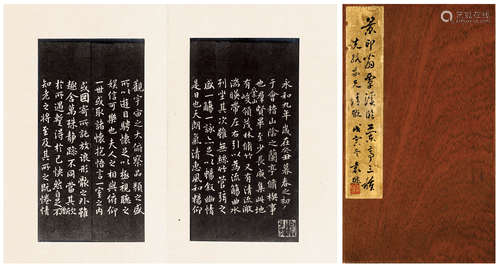 永和九年歲在癸丑暮春之初
于會稽山陰之蘭亭脩稧事
也羣賢畢至少長咸集此地
有崇山峻領茂林脩竹又有清流激
湍映帶左右引以為流觴曲水
列坐其次雖無絲竹管弦之
盛一觴一詠亦足以暢叙幽情
是日也天朗氣清惠風和暢仰
觀宇宙之大俯察品類之盛
所以遊目騁懷足以極視聽之
娛信可樂也夫人之相與俯仰
一世或取諸懷抱悟言一室之內
或因寄所託放浪形骸之外雖
趣舍萬殊靜躁不同當其欣
於所遇暫得於己快然自足不
知老之將至及其所之既惓情
蘭亭三種
戊寅冬